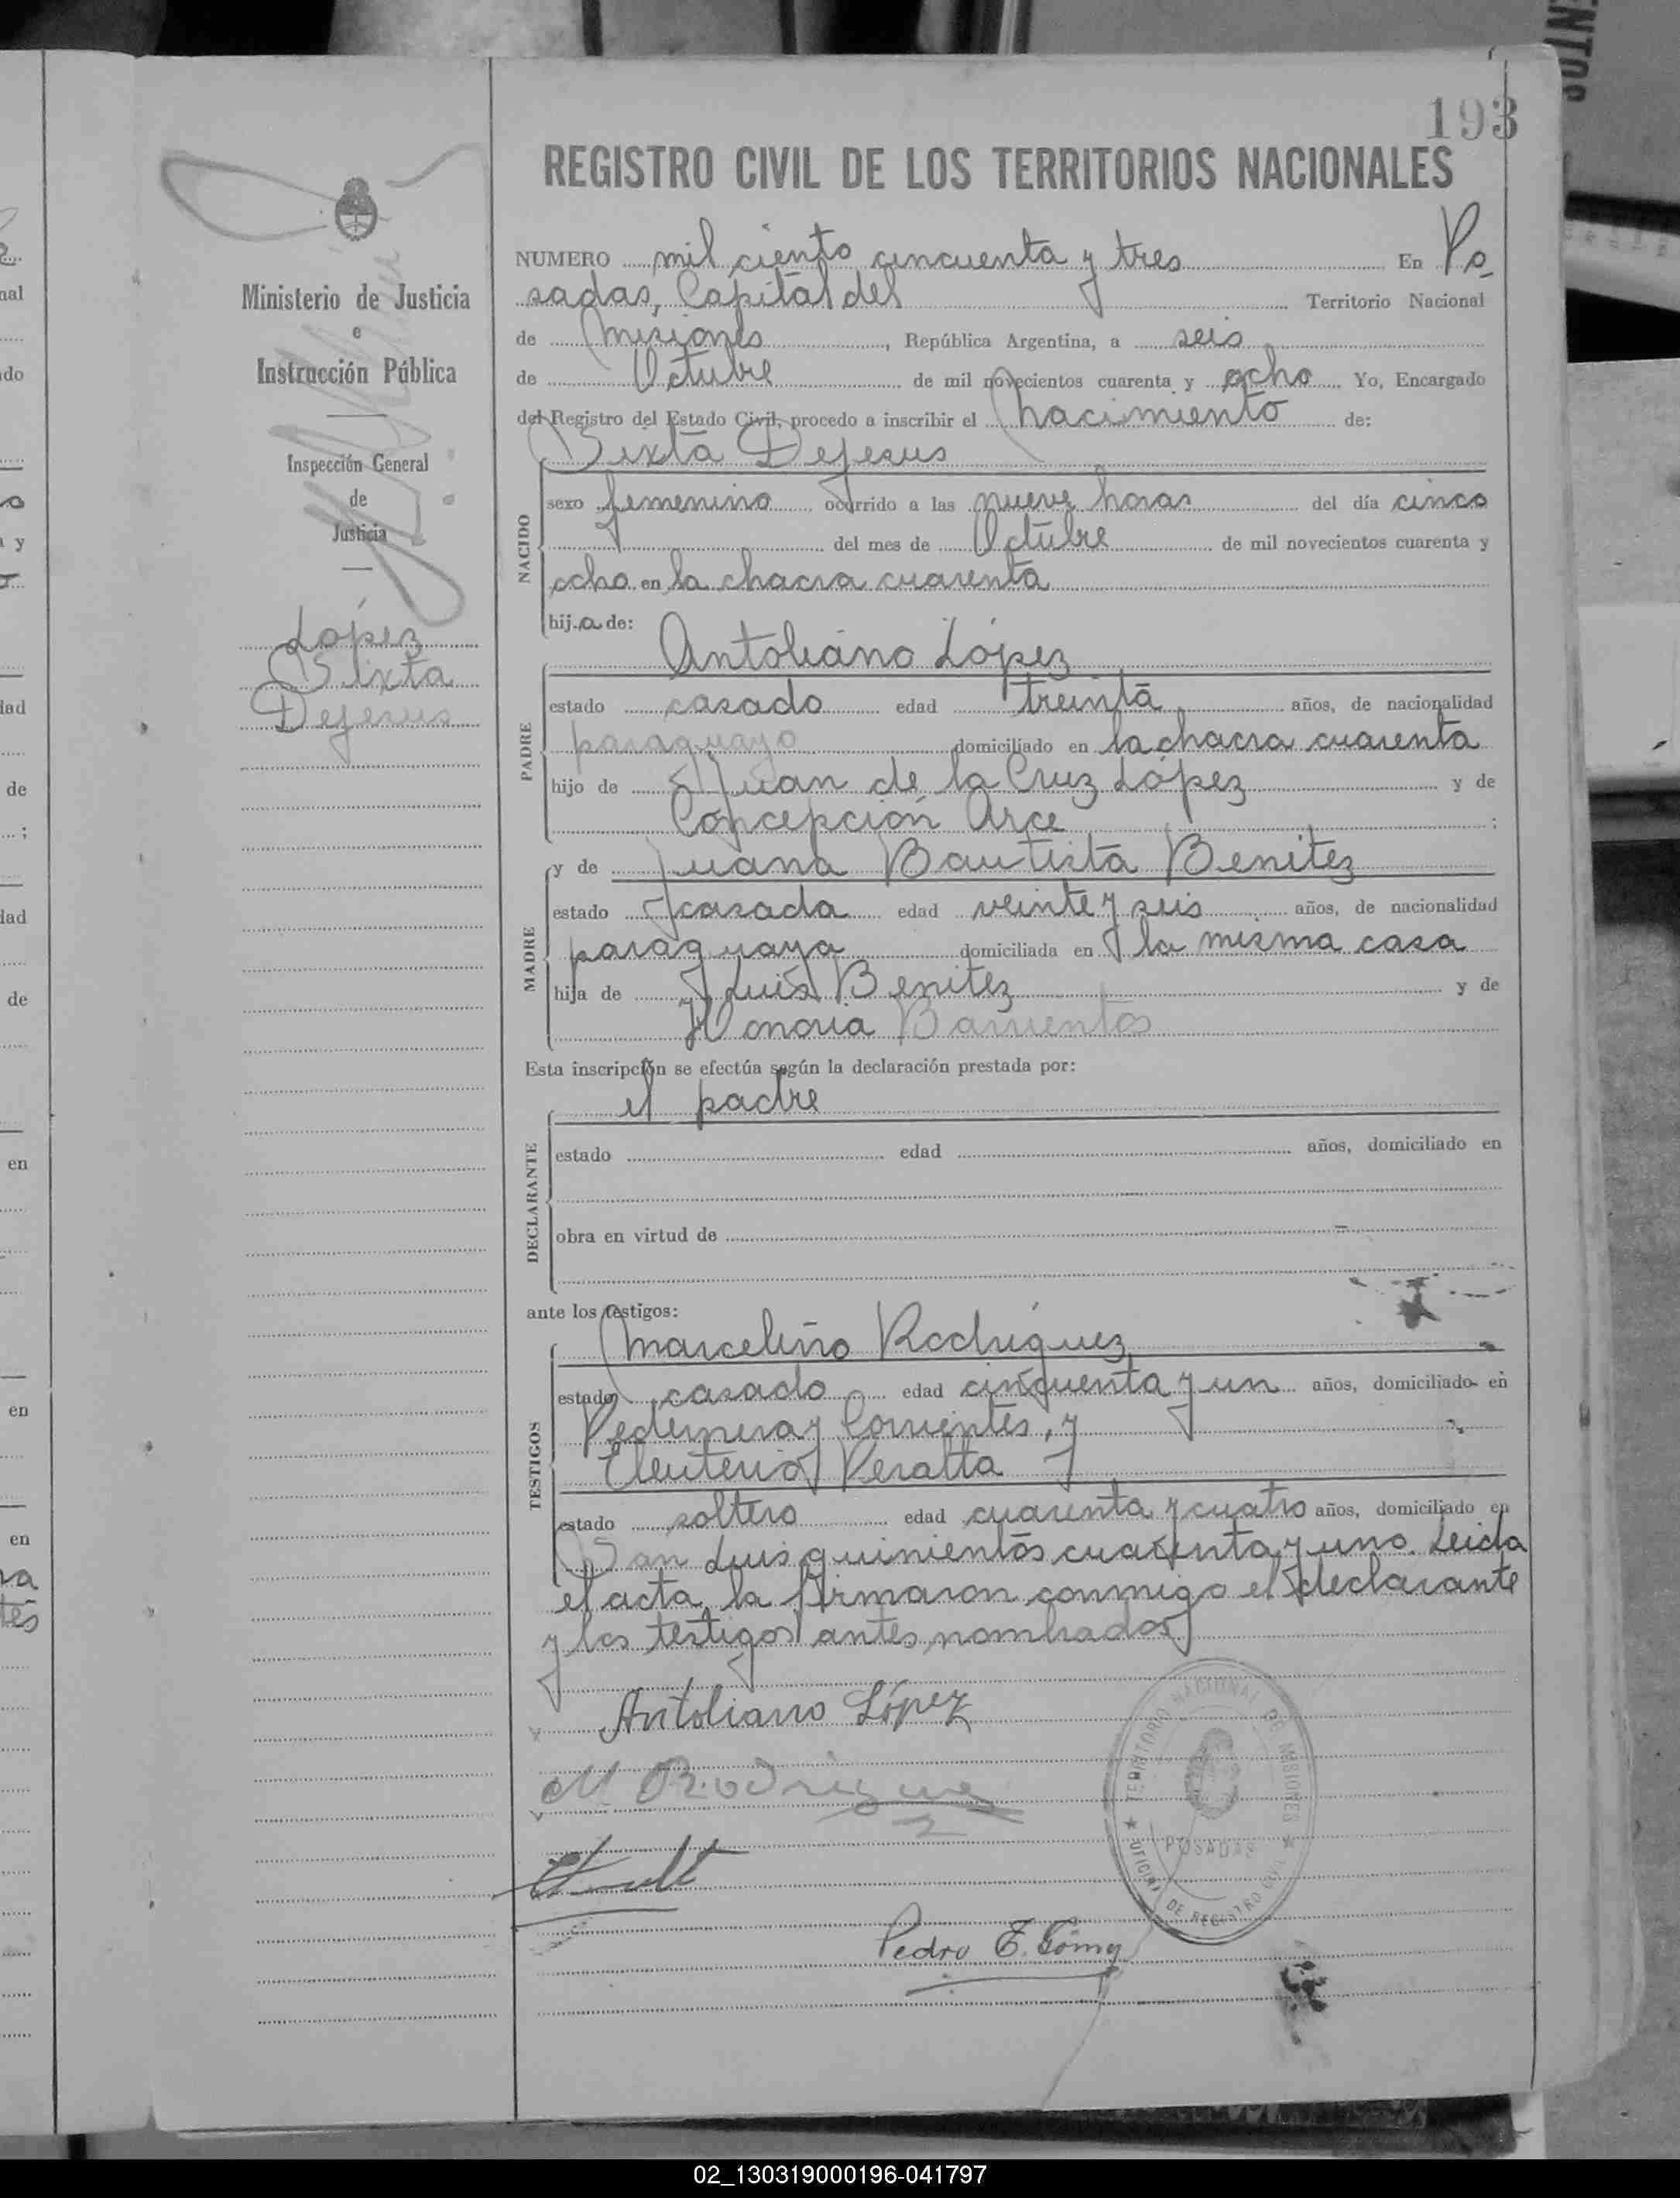 193
REGISTRO CIVIL DE LOS TERRITORIOS NACIONALES
Ministerio de Justicia
e
Instrucción Pública
Inspección General
de
Justicia
López
Sixta
Dejesus
NUMERO mil ciento cincuenta y tres En Po
sadas, Capital del Territorio Nacional
de Misiones, República Argentina, a seis
de Octubre de mil novecientos cuarenta y ocho Yo, Encargado
del Registro del Estado Civil, procedo a inscribir el nacimiento de:
Sixta Dejesus
NACIDO
sexo femenino ocurrido a las nueve horas del día cinco
del mes de Octubre de mil novecientos cuarenta y
ocho en la chacra cuarenta
hija de:
Antoliano López
PADRE
estado casado edad treinta años, de nacionalidad
paraguayo domiciliado en la chacra cuarenta
hijo de Juan de la Cruz López y de
Concepción Arce ;
y de Juana Bautista Benitez
MADRE
estado casada edad veinte y seis años, de nacionalidad
paraguaya domiciliada en la misma casa
hija de Luis Benitez y de
Honoria Barrientos
Esta inscripción se efectúa según la declaración prestada por:
el padre
DECLARANTE
estado edad años, domiciliado en
obra en virtud de
ante los testigos:
Marcelino Rodriguez
TESTIGOS
estado casado edad cinquenta y un años, domiciliado en
Pedernera y Corrientes, y
Eleuterio Peralta
estado soltero edad cuarenta y cuatro años, domiciliado en
San Luis quinientos cuarenta y uno. Leida
el acta, la firmaron conmigo el declarante
y los testigos antes nombrados
Antoliano López
M Rodriguez
Pedro E. Gómez
TERRITORIO NACIONAL DE MISIONES
POSADAS
OFICINA DE REGISTRO CIVIL
02_130319000196-041797